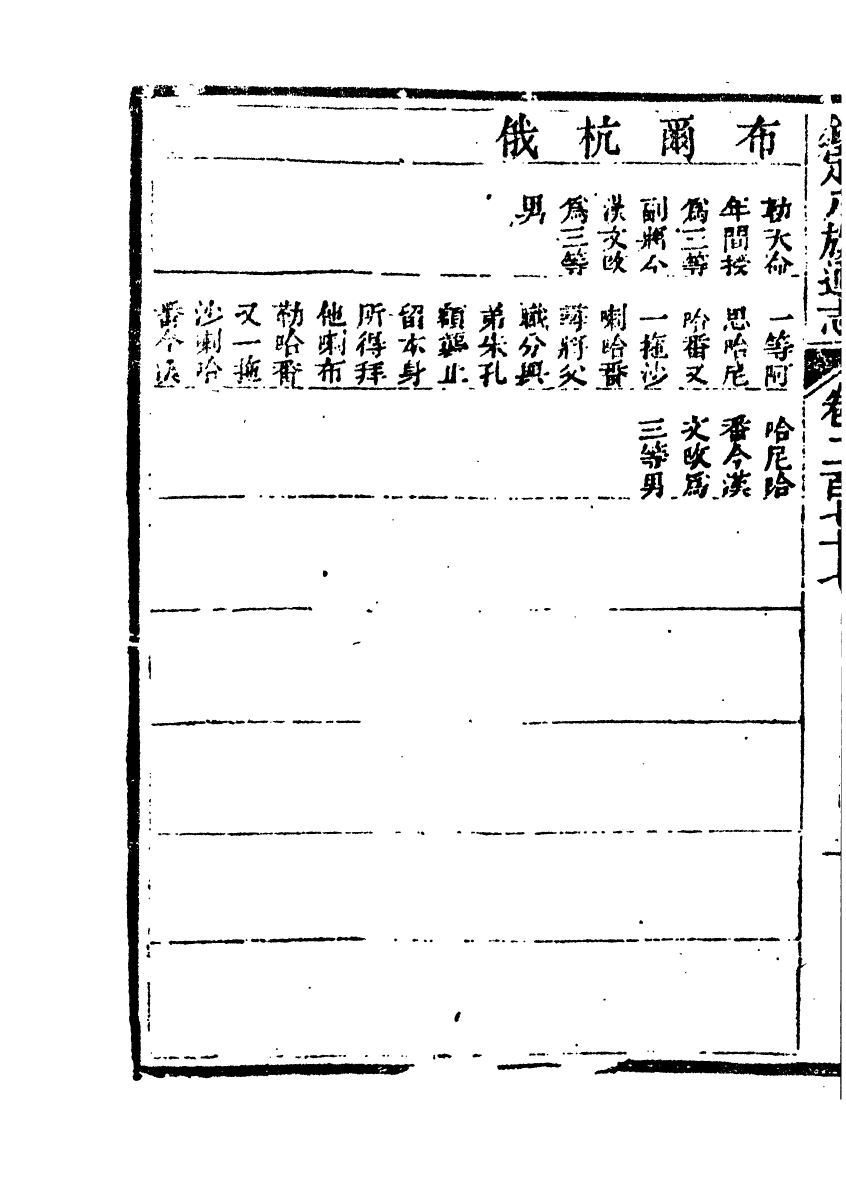 欽定八旗通志 卷二百七十七
布爾杭俄
勒天命
年間授
爲三等
副將今
漢文改
爲三等
男
一等阿
思哈尼
哈番又
一拖沙
喇哈番
將父
職分與
弟朱孔
額襲止
留本身
所得拜
他喇布
勒哈番
又一拖
沙喇哈
番今漢
哈尼哈
番今漢
文改爲
三等男